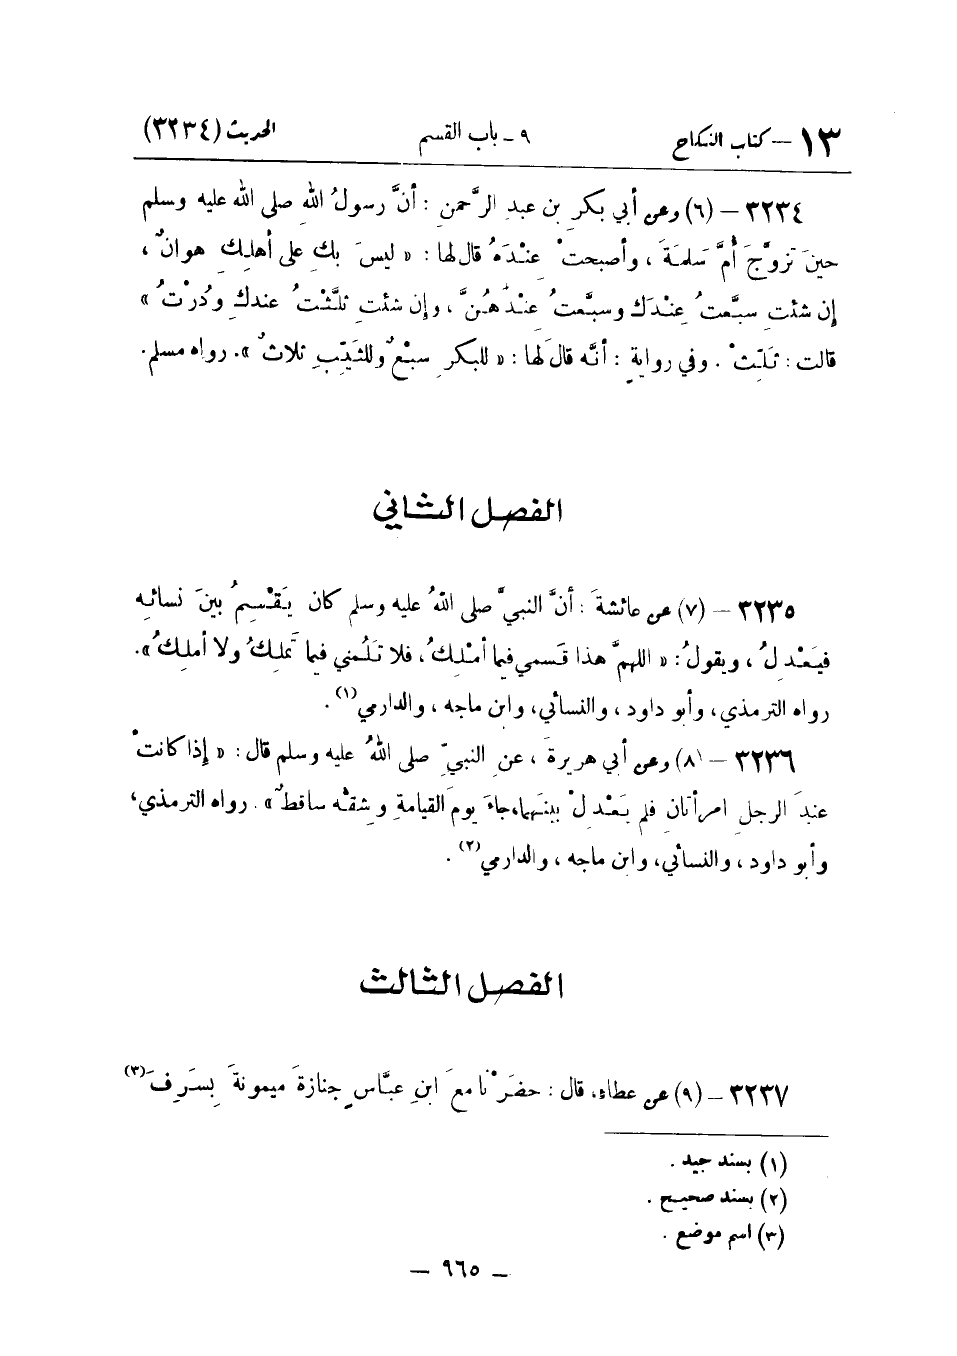 ١٣ – كتاب النكاح ٩ ـ باب القسم الحديث (٣٢٣٤)
٣٢٣٤ – (٦) وعن أبي بكرِ بن عبدِ الرَّحمنِ : أنَّ رسولُ اللهِ صلى اللهُ عليه وسلم
حينَ تزوَّجَ أُمَّ سَلمَةَ ، وأصبحتْ عِنْدَهُ قال لها : « ليسَ بكِ على أهلِكِ هوانٌ ،
إن شئتِ سبَّعتُ عِنْدَك وسبَّعتُ عِنْدَهُنَّ ، وإن شئتِ ثلَّثتُ عندكِ ودُرْتُ »
قالت : ثَلِّثْ . وفي روايةٍ : أنَّه قالَ لها : « للبكرِ سبْعٌ وللثَيِّبِ ثلاثٌ ». رواه مسلم.
الفصل الثاني
٣٢٣٥ – (٧) عن عائشةَ : أنَّ النبيَّ صلى اللهُ عليه وسلم كان يَقْسِمُ بينَ نسائِهِ
فيَعْدِلُ ، ويقولُ : « اللهمَّ هذا قَسمي فيما أمْلِكُ، فلا تَلُمني فيما تَملِكُ ولا أملِكُ ».
رواه الترمذي، وأبو داود ، والنسائي، وابن ماجه ، والدارمي(١) .
٣٢٣٦ – (٨) وعن أبي هريرةَ ، عنِ النبيِّ صلى اللهُ عليه وسلم قال : « إِذا كانتْ
عندَ الرجلِ امرأتانِ فلم يَعْدِلْ بينَهما، جاءَ يومَ القيامةِ وشِقُّه ساقطٌ ». رواه الترمذي،
وأبو داود ، والنسائي، وابن ماجه ، والدارمي(٢) .
الفصل الثالث
٣٢٣٧ – (٩) عن عطاءٍ، قال : حضَرْنا معَ ابنِ عبَّاسٍ جنازةَ ميمونةَ بِسَرِفَ(٣)
(١) بسند جيد .
(٢) بسند صحيح .
(٣) اسم موضع .
– ٩٦٥ –